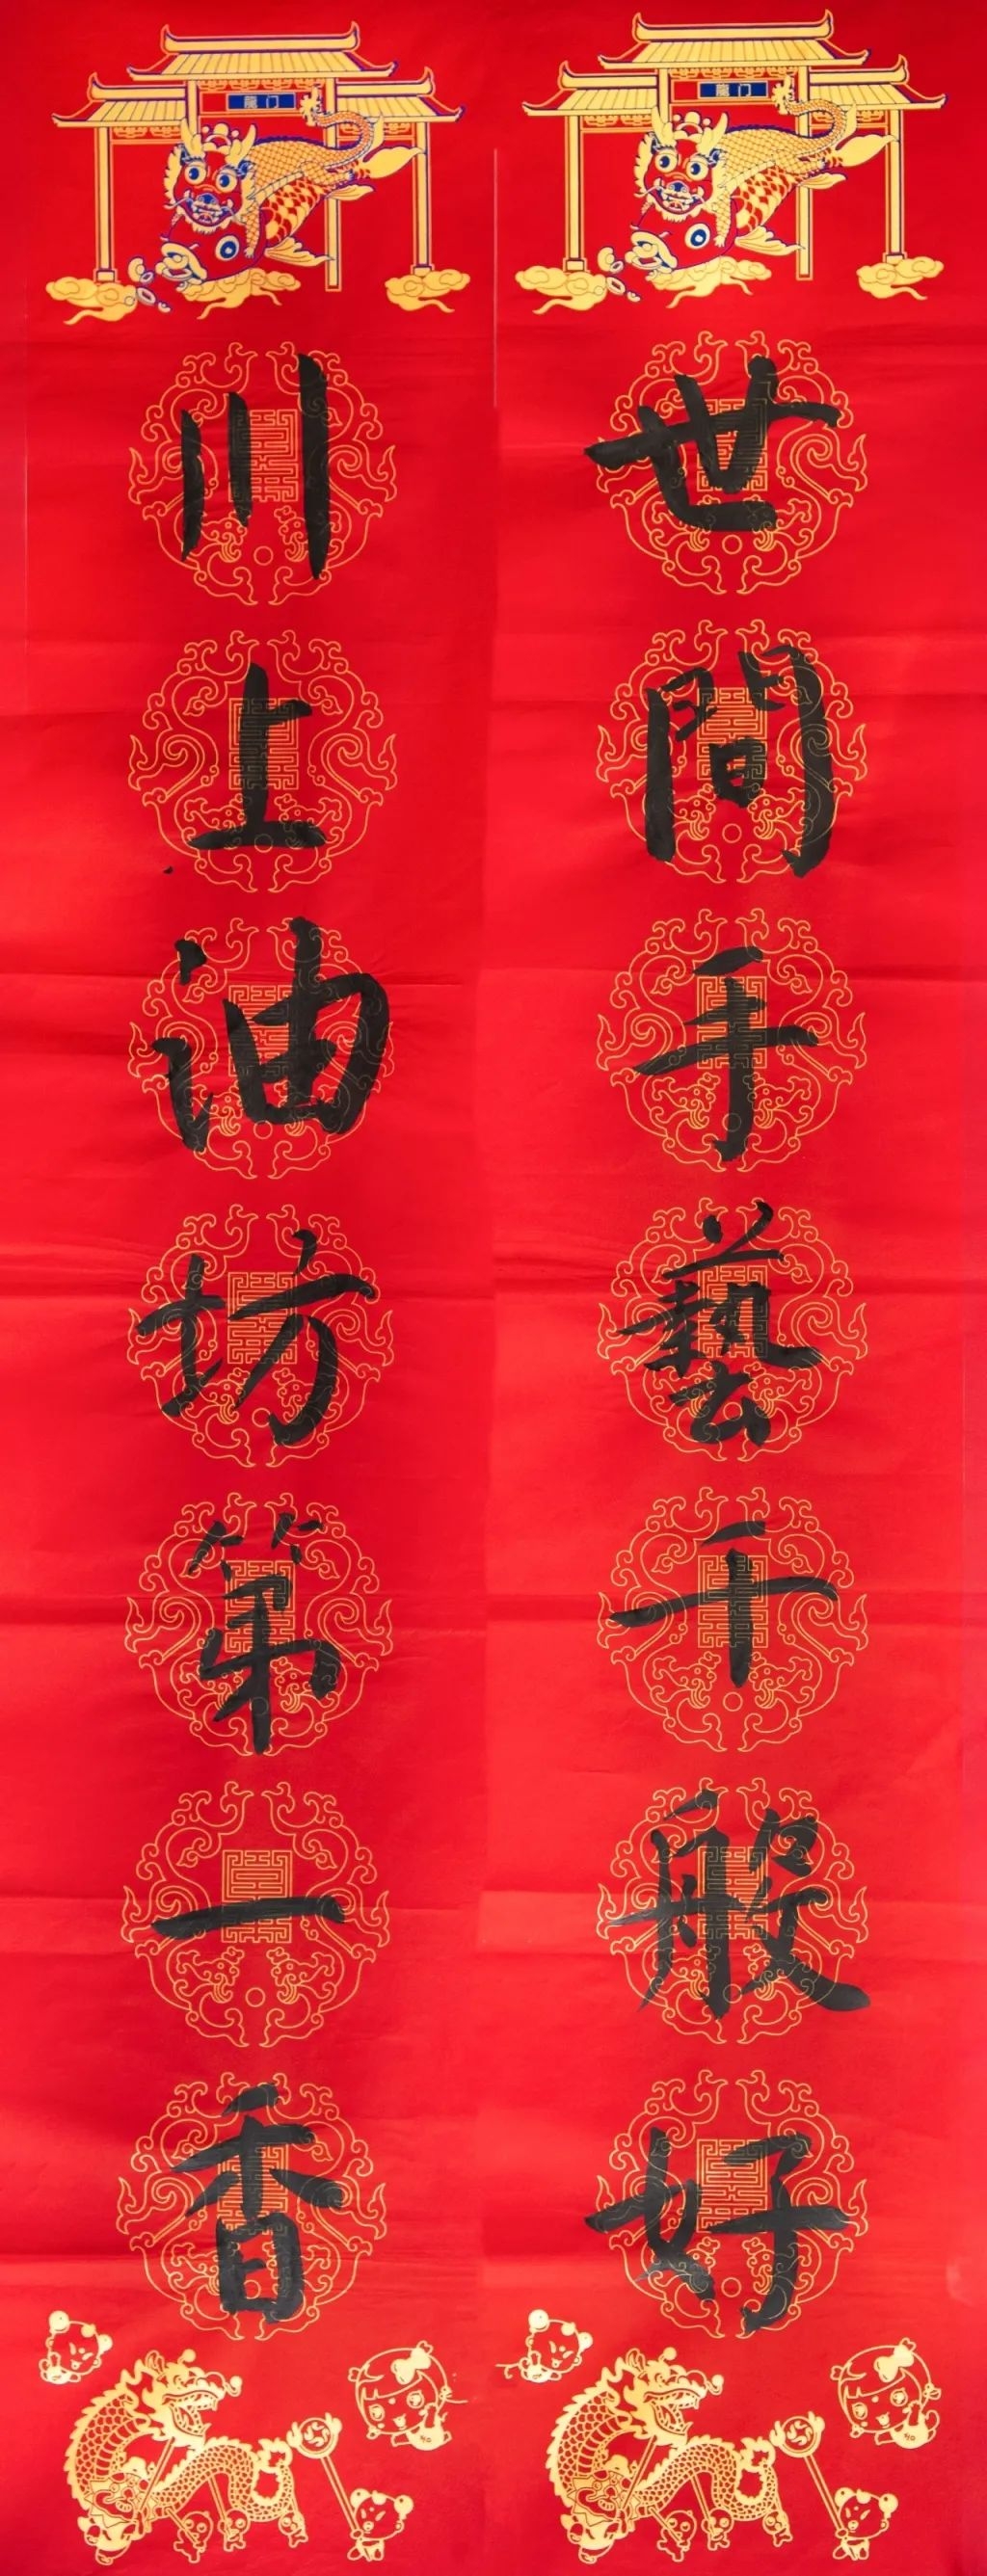 龍门
龍门
世間手藝千般好
川上油坊第一香